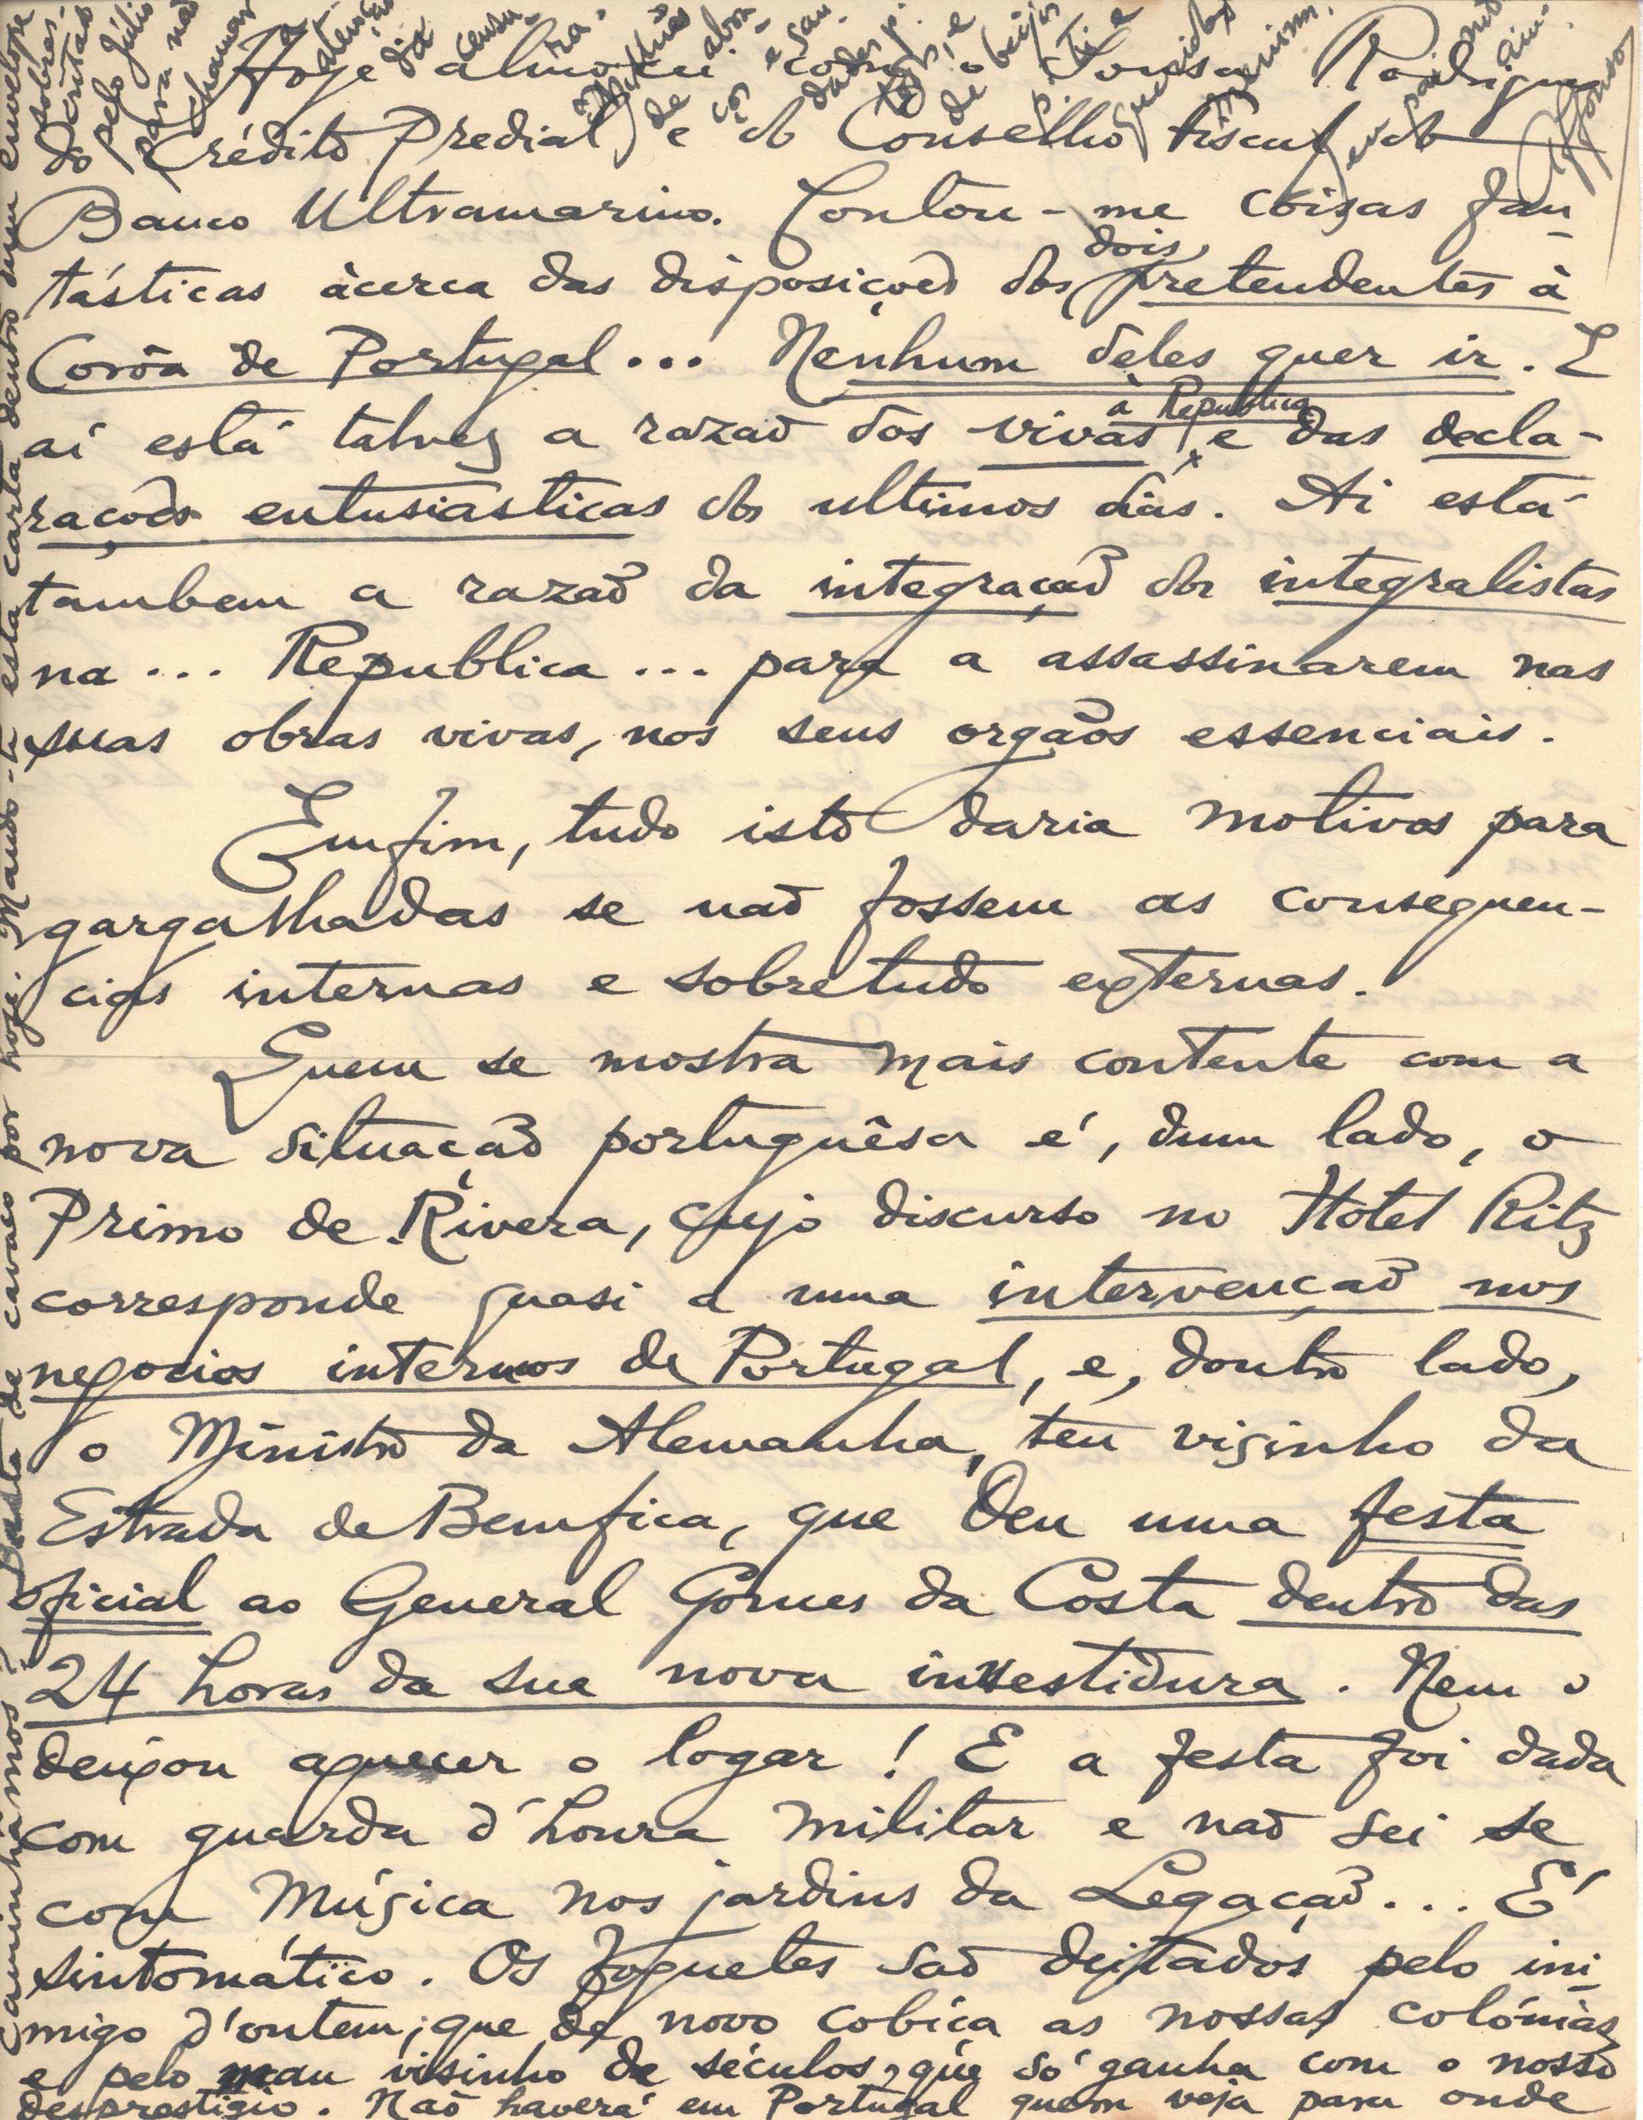 Hoje almocei com o Sousa Rodrigues
do Crédito Predial, e do Conselho fiscal do
Banco Ultramarino. Contou-me coisas fan-
tásticas àcerca das disposições dos dois pretendentes à
Corôa de Portugal... Nenhum dêles quer ir. E
aí está talvez a razaõ dos vivas à Republica e das decla-
rações entusiasticas dos ultimos dias. Ai está
tambem a razaõ da integraçaõ dos integralistas
na... Republica... para a assassinarem nas
suas obras vivas, nos seus orgaõs essenciais.
Emfim, tudo isto daria motivos para
gargalhadas se naõ fossem as consequen-
cias internas e sobretudo externas.
Quem se mostra mais contente com a
nova situaçaõ portuguêsa é, dum lado, o
Primo de Rivera, cujo discurso no Hotel Ritz
corresponde quasi a uma intervençaõ nos
negocios internos de Portugal, e, doutro lado,
o Ministro da Alemanha, teu visinho da
Estrada de Bemfica, que deu uma festa
oficial ao General Gomes da Costa dentro das
24 horas da sua nova investidura. Nem o
deixou aquecer o logar! E a festa foi dada
com guarda d'honra militar e naõ sei se
com Música nos jardins da Legaçaõ... É
sintomático. Os foguetes saõ deitados pelo ini-
migo d'ontem, que de novo cobiça as nossas colónias
e pelo mau visinho de séculos, que só ganha com o nosso
desprestigio. Naõ haverá em Portugal quem veja para onde
caminhâmos? Basta de cavaco por hoje. Mando-te esta carta dentro dum envelope
sobres-
critado
pelo Júlio
para naõ
chamar
a
atençaõ
da
censu-
ra.
Muitos
abra-
ços
e sau-
dades p.
todos, e
beijos
p. ti e
queridos
do
Afonso